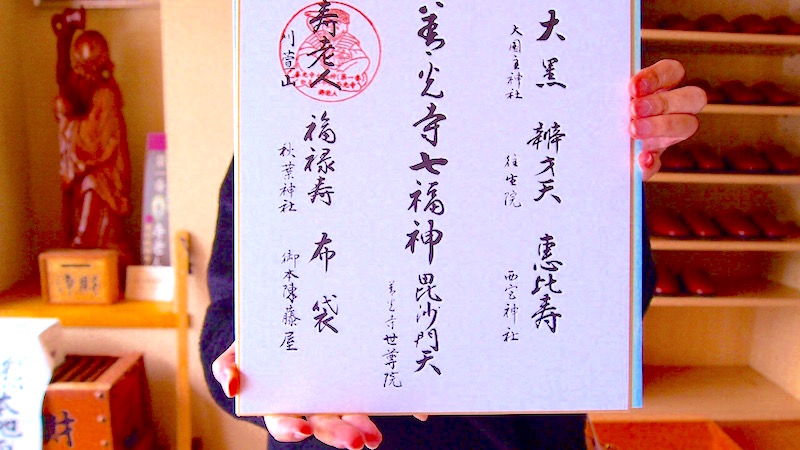 大黒
大国主神社
辨才天
往生院
恵比寿
西宮神社
善光寺七福神
毘沙門天
善光寺世尊院
寿老人
刈萱山
福禄寿
秋葉神社
布袋
御本陳藤屋
浄財
財